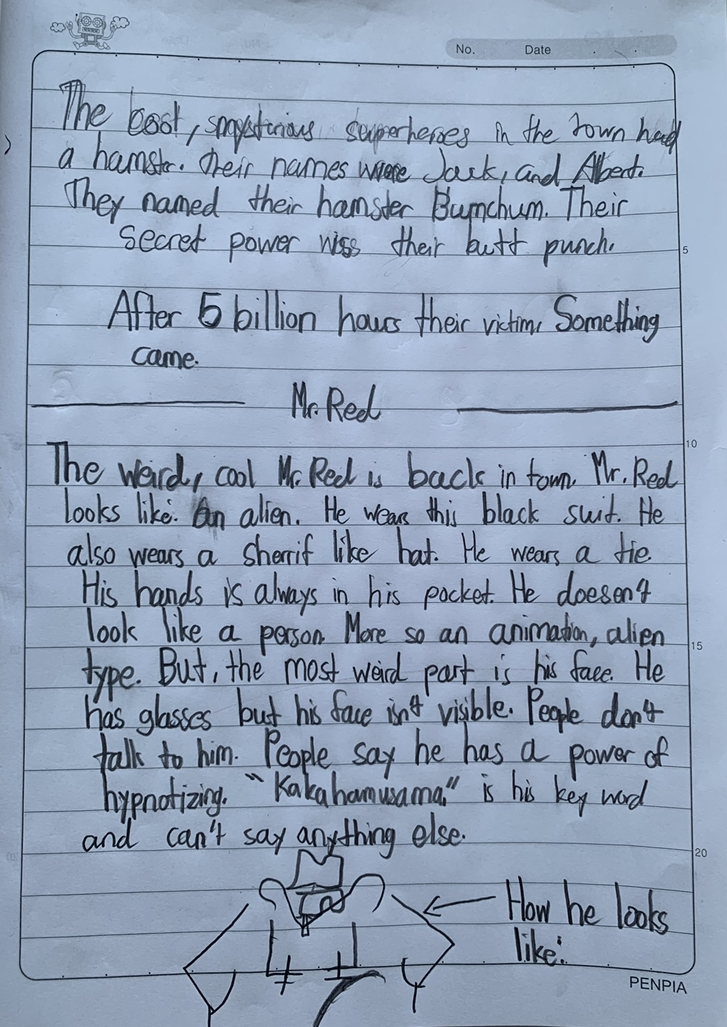 No. Date
The best, mysterious superheroes in the town had
a hamster. Their names were Jack, and Albert.
They named their hamster Bumchum. Their
secret power was their butt punch.
5
After 5 billion hours their victim, Something
came.
Mr. Red
10
The weird, cool Mr. Red is back in town. Mr. Red
looks like. An alien. He wears this black suit. He
also wears a sherrif like hat. He wears a tie.
His hands is always in his pocket. He doesen't
look like a person. More so an animation, alien
15
type. But, the most weird part is his face. He
has glasses but his face isn't visible. People don't
talk to him. People say he has a power of
hypnotizing. "Kakahamusama." is his key word
and can't say anything else.
20
How he looks
like:
PENPIA